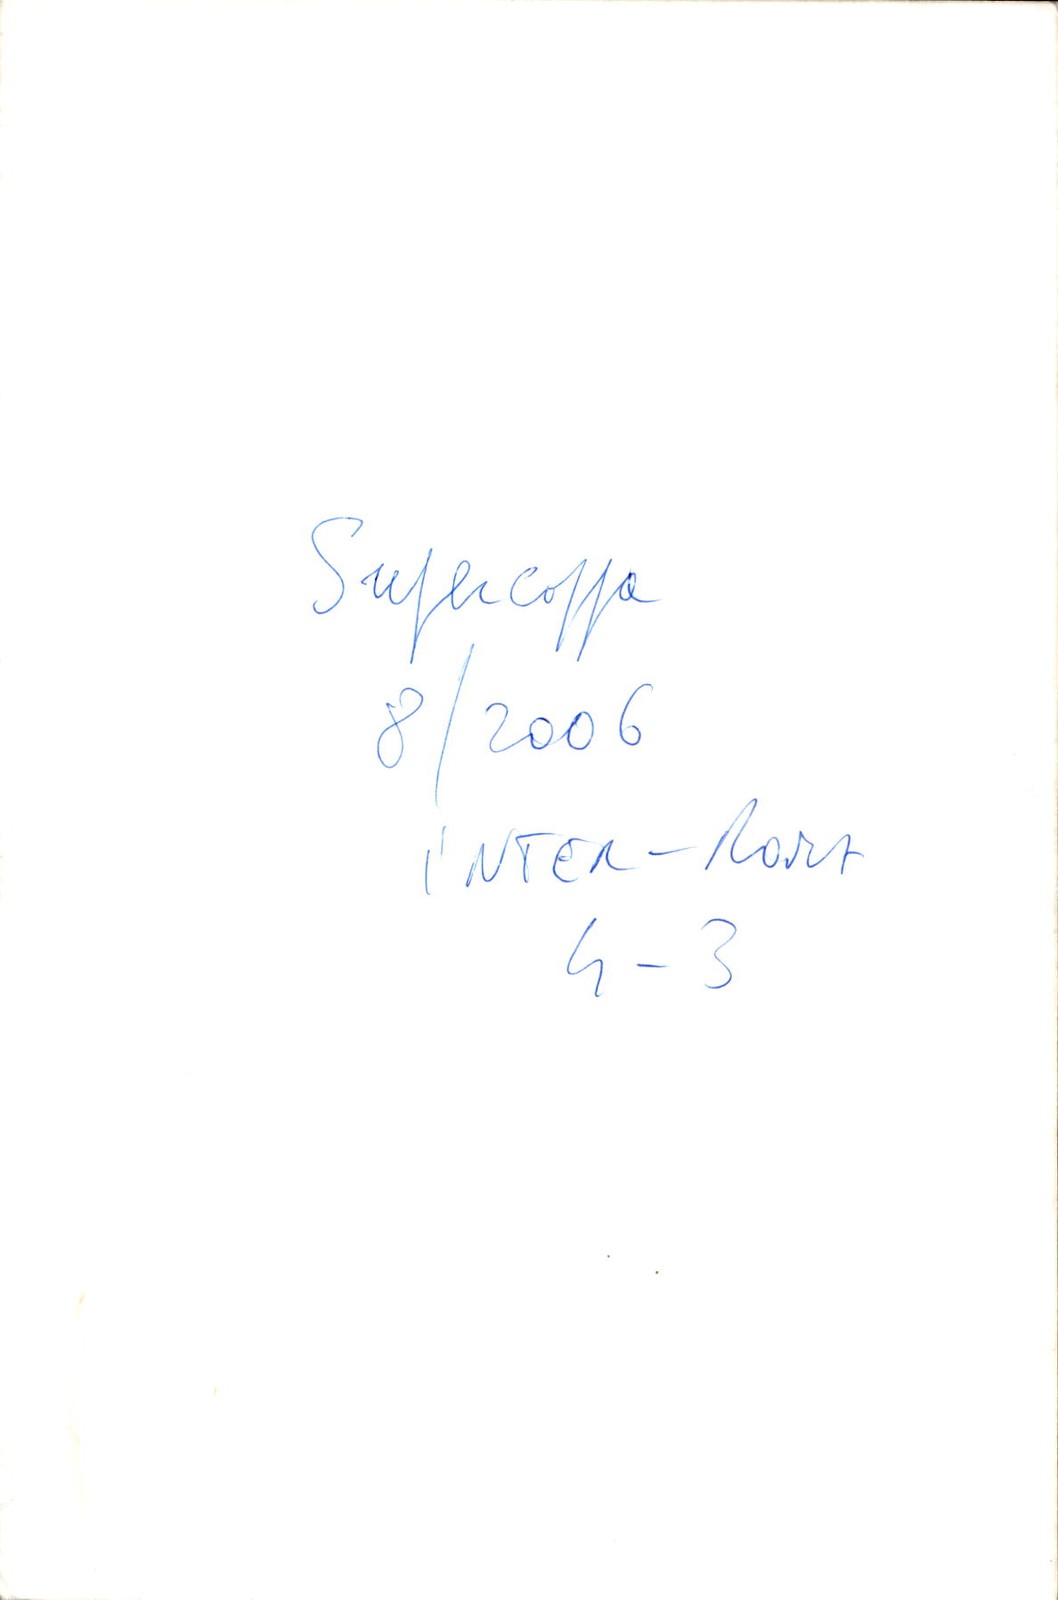 Supercoppa
8/2006
INTER - ROMA
4 - 3